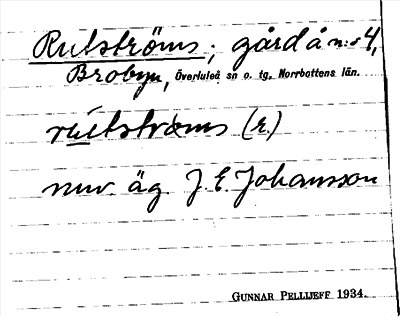 Rutströms; gård å n:o 4,
Brobyn, Överluleå sn o. tg. Norrbottens län.
rútströms (r.)
nuv äg. J. E. Johansson
GUNNAR PELLIJEFF 1934.